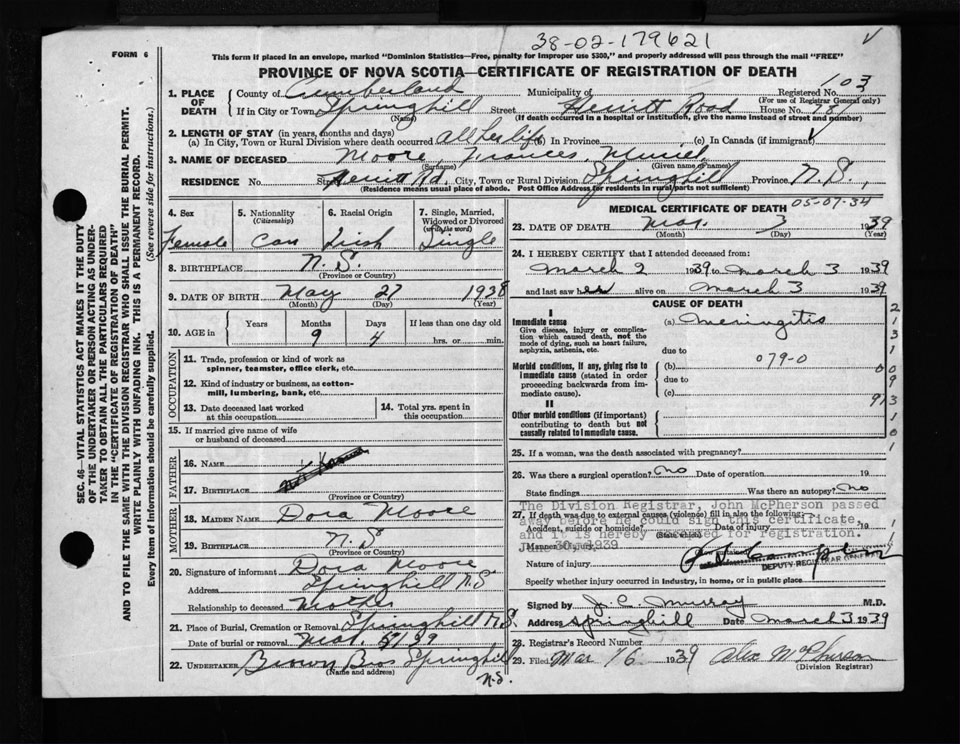 38-02-179621
FORM 6
This form if placed in an envelope, marked "Dominion Statistics—Free, penalty for improper use $300," and properly addressed will pass through the mail "FREE"
PROVINCE OF NOVA SCOTIA—CERTIFICATE OF REGISTRATION OF DEATH
1. PLACE OF DEATH
County of Cumberland Municipality of Registered No. 103
(For use of Registrar General only)
If in City or Town Springhill Street Herritt Road House No. 781
(Name) (If death occurred in a hospital or institution, give the name instead of street and number)
2. LENGTH OF STAY (in years, months and days)
(a) In City, Town or Rural Division where death occurred All her life (b) In Province (c) In Canada (if immigrant)
3. NAME OF DECEASED Moore, Frances, Muriel
(Surname) (Given name or names)
RESIDENCE No. Street Herritt Rd. City, Town or Rural Division Springhill Province N.S.,
(Residence means usual place of abode. Post Office Address for residents in rural parts not sufficient)
4. Sex Female
5. Nationality (Citizenship) Can
6. Racial Origin Irish
7. Single, Married, Widowed or Divorced (write the word) Single
8. BIRTHPLACE N.S.
(Province or Country)
9. DATE OF BIRTH May 27 1938
(Month) (Day) (Year)
10. AGE in Years Months Days If less than one day old
9 4 hrs. or min.
OCCUPATION
11. Trade, profession or kind of work as spinner, teamster, office clerk, etc.
12. Kind of industry or business, as cotton-mill, lumbering, bank, etc.
13. Date deceased last worked at this occupation
14. Total yrs. spent in this occupation
15. If married give name of wife or husband of deceased
FATHER
16. NAME
17. BIRTHPLACE
(Province or Country)
MOTHER
18. MAIDEN NAME Dora Moore
19. BIRTHPLACE N.S
(Province or Country)
20. Signature of informant Dora Moore
Address Springhill N.S
Relationship to deceased Mother
21. Place of Burial, Cremation or Removal Springhill N.S.
Date of burial or removal Mar. 5/39
22. UNDERTAKER Brown Bros Springhill
(Name and address) N.S.
MEDICAL CERTIFICATE OF DEATH 05-07-34
23. DATE OF DEATH Mar. 3 1939
(Month) (Day) (Year)
24. I HEREBY CERTIFY that I attended deceased from:
March 2 1939 to March 3 1939
and last saw her alive on March 3 1939
CAUSE OF DEATH
I
Immediate cause (a) Meningitis
Give disease, injury or complication which caused death, not the mode of dying, such as heart failure, asphyxia, asthenia, etc.
due to
Morbid conditions, if any, giving rise to immediate cause (stated in order proceeding backwards from immediate cause). (b) 079-0
due to
(c)
II
Other morbid conditions (if important) contributing to death but not causally related to immediate cause.
25. If a woman, was the death associated with pregnancy?
26. Was there a surgical operation? No Date of operation 19
State findings Was there an autopsy? No
27. If death was due to external causes (violence) fill in also the following:
The Division Registrar, John McPherson passed
away before he could sign this certificate,
Accident, suicide or homicide? Date of injury 19
(State which)
Manner of injury
June 30, 1939
Nature of injury
DEPUTY REGISTRAR GENERAL
Specify whether injury occurred in industry, in home, or in public place
Signed by J. C. Murray M.D.
Address Springhill Date March 3 1939
28. Registrar's Record Number
29. Filed Mar 16 1939 Alex McPherson
(Division Registrar)
SEC. 46—VITAL STATISTICS ACT MAKES IT THE DUTY
OF THE UNDERTAKER OR PERSON ACTING AS UNDERTAKER TO OBTAIN ALL THE PARTICULARS REQUIRED
IN THE "CERTIFICATE OF REGISTRATION OF DEATH"
AND TO FILE THE SAME WITH THE DIVISION REGISTRAR WHO SHALL ISSUE THE BURIAL PERMIT.
WRITE PLAINLY WITH UNFADING INK. THIS IS A PERMANENT RECORD.
Every item of information should be carefully supplied. (See reverse side for instructions.)